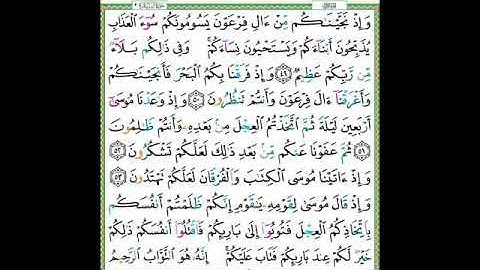 وَإِذْ نَجَّيْنَـٰكُم مِّنْ ءَالِ فِرْعَوْنَ يَسُومُونَكُمْ سُوٓءَ ٱلْعَذَابِ
يُذَبِّحُونَ أَبْنَآءَكُمْ وَيَسْتَحْيُونَ نِسَآءَكُمْ وَفِى ذَٰلِكُم بَلَآءٌ
مِّن رَّبِّكُمْ عَظِيمٌ ٤٩ وَإِذْ فَرَقْنَا بِكُمُ ٱلْبَحْرَ فَأَنجَيْنَـٰكُمْ
وَأَغْرَقْنَآ ءَالَ فِرْعَوْنَ وَأَنتُمْ تَنظُرُونَ ٥٠ وَإِذْ وَٰعَدْنَا مُوسَىٰٓ
أَرْبَعِينَ لَيْلَةً ثُمَّ ٱتَّخَذْتُمُ ٱلْعِجْلَ مِنۢ بَعْدِهِۦ وَأَنتُمْ ظَـٰلِمُونَ
٥١ ثُمَّ عَفَوْنَا عَنكُم مِّنۢ بَعْدِ ذَٰلِكَ لَعَلَّكُمْ تَشْكُرُونَ ٥٢
وَإِذْ ءَاتَيْنَا مُوسَى ٱلْكِتَـٰبَ وَٱلْفُرْقَانَ لَعَلَّكُمْ تَهْتَدُونَ ٥٣
وَإِذْ قَالَ مُوسَىٰ لِقَوْمِهِۦ يَـٰقَوْمِ إِنَّكُمْ ظَلَمْتُمْ أَنفُسَكُم
بِٱتِّخَاذِكُمُ ٱلْعِجْلَ فَتُوبُوٓا۟ إِلَىٰ بَارِئِكُمْ فَٱقْتُلُوٓا۟ أَنفُسَكُمْ ذَٰلِكُمْ
خَيْرٌ لَّكُمْ عِندَ بَارِئِكُمْ فَتَابَ عَلَيْكُمْ ۚ إِنَّهُۥ هُوَ ٱلتَّوَّابُ ٱلرَّحِيمُ